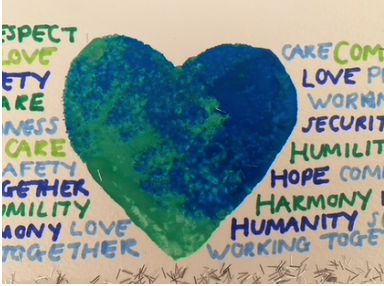 ESPECT
LOVE
ETY
ARE
NESS
CARE
AFETY
GETHER
MILITY
MONY LOVE
TOGETHER
CARE COM
LOVE P
WORKIN
SECURIT
HUMILIT
HOPE COM
HARMONY
HUMANITY S
WORKING TOGE